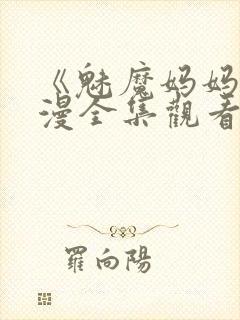 《魅魔妈妈
漫全集觀看
羅向陽